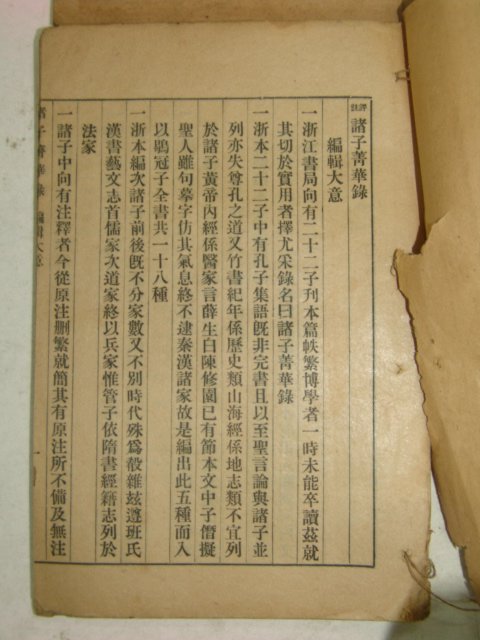 評註諸子菁華錄
編輯大意
一浙江書局向有二十二子刋本篇帙繁博學者一時未能卒讀茲就
其切於實用者擇尤采錄名曰諸子菁華錄
一浙本二十二子中有孔子集語旣非完書且以至聖言論與諸子並
列亦失尊孔之道又竹書紀年係歷史類山海經係地志類不宜列
於諸子黃帝內經係醫家言薛生白陳修園已有節本文中子僭擬
聖人雖句摹字仿其氣息終不逮秦漢諸家故是編出此五種而入
以鶡冠子全書共一十八種
一浙本編次諸子前後旣不分家數又不別時代殊爲殽雜茲遵班氏
漢書藝文志首儒家次道家終以兵家惟管子依隋書經籍志列於
法家
一諸子中向有注釋者今從原注删繁就簡其有原注所不備及無注
諸子菁華錄 編輯大意 一